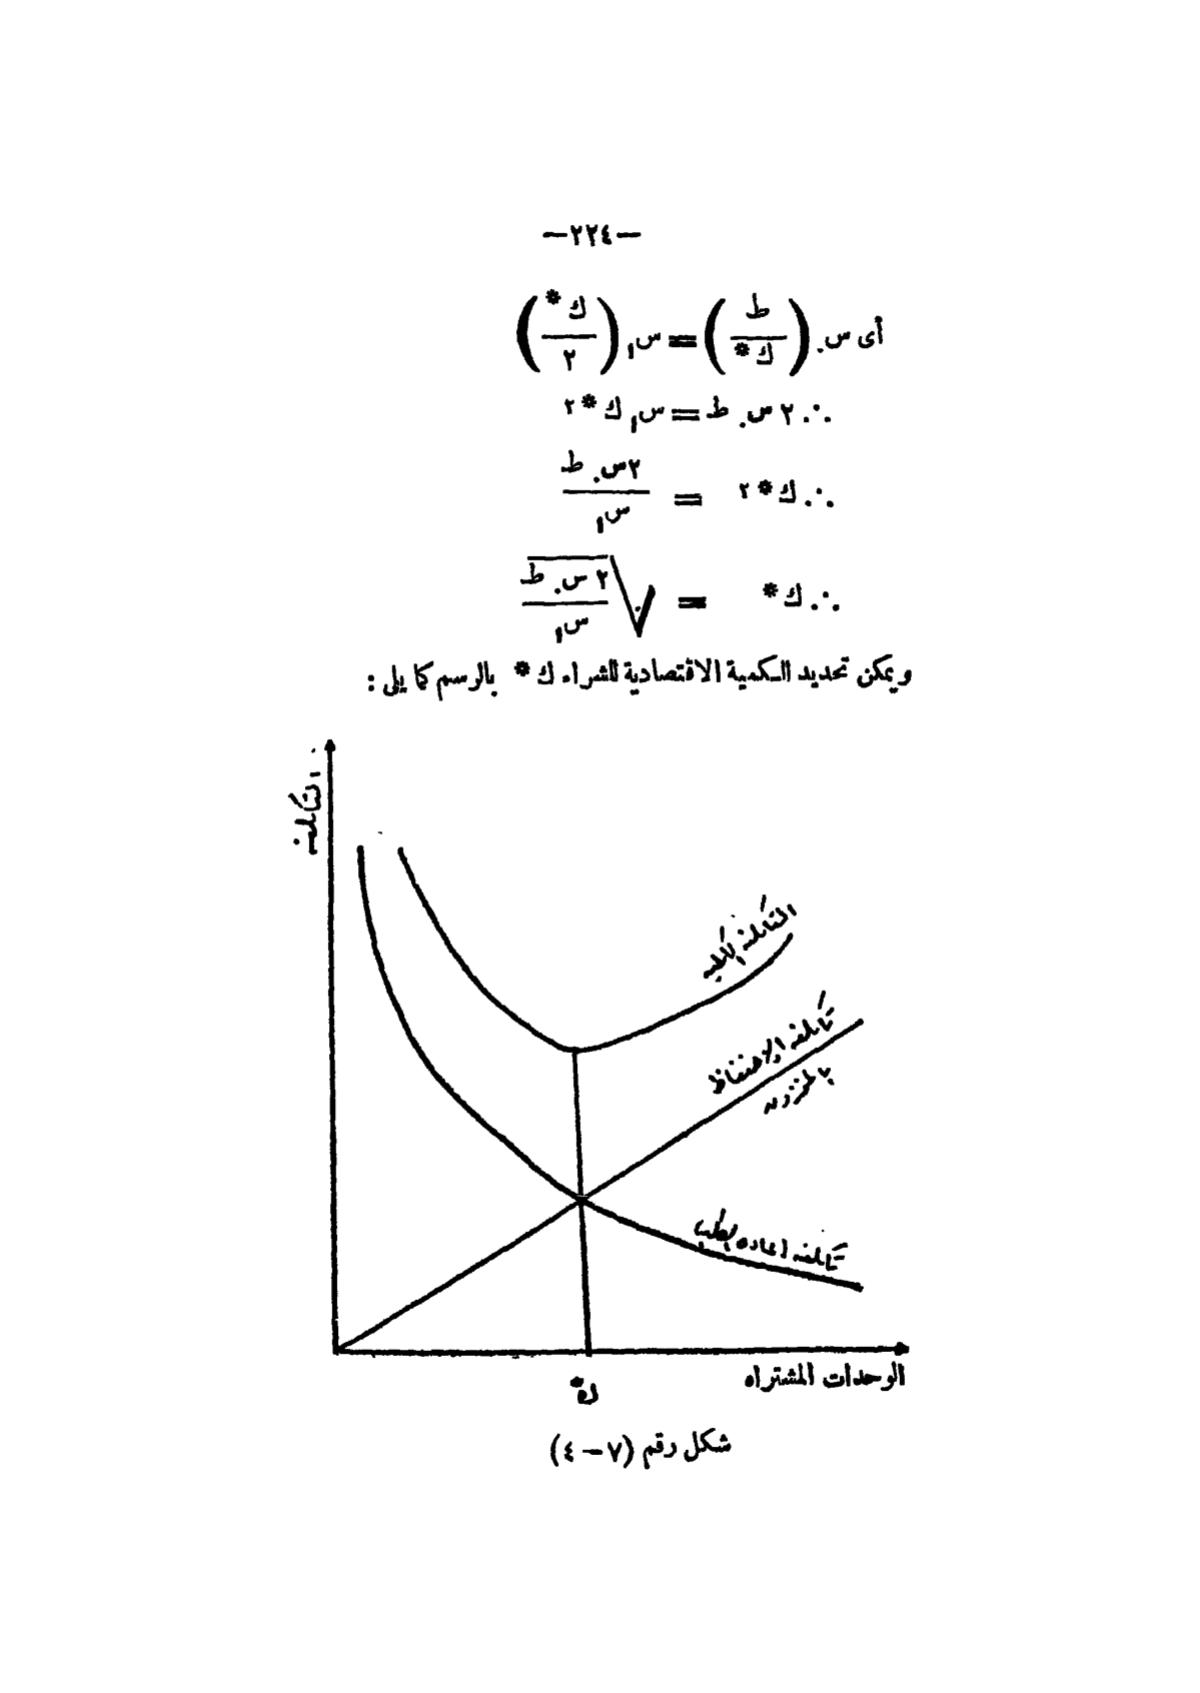 —٢٢٤—
أى س. (ط / ك*) = س١ (ك* / ٢)
∴ ٢ س. ط = س١ ك*٢
∴ ك*٢ = ٢س. ط / س١
∴ ك* = √(٢ س. ط / س١)
ويمكن تحديد الكمية الاقتصادية للشراء ك* بالرسم كما يلى :
التكلفة
التكلفة الكلية
تكلفة الاحتفاظ
بالمخزون
تكلفة اعادة الطلب
الوحدات المشتراه
ك*
شكل رقم (٧ – ٤)